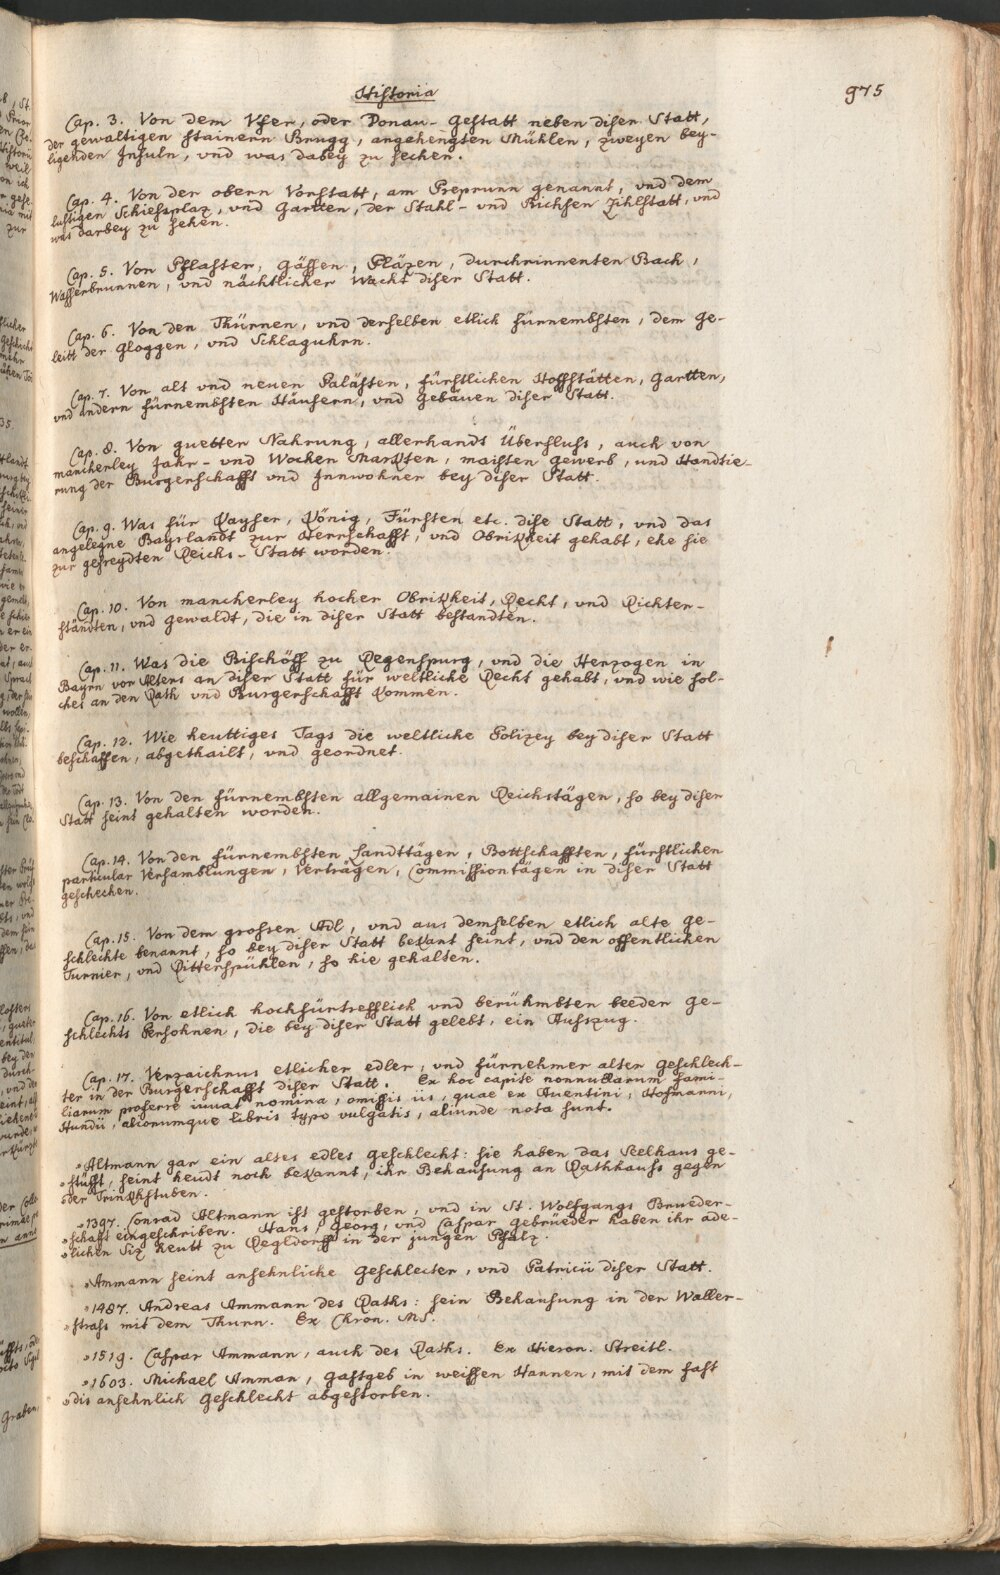 Historia
975
Cap. 3. Von dem Vfer, oder Donau-Gestatt neben diser Statt,
der gewaltigen stainern Brugg, angehengten Mühlen, zweyen bey-
ligenden Insuln, vnd was dabey zu sechen.
Cap. 4. Von der obern Vorstatt, am Preprunn genannt, vnd dem
lustigen Schiessplaz, vnd Gartten, der Stahl- vnd Richsen Zihlstatt, vnd
was darbey zu sehen.
Cap. 5. Von Pflaster, Gässen, Pläzen, durchrinnenten Bach,
Wasserbrunnen, vnd nächtlicher Wacht diser Statt.
Cap. 6. Von den Thürnen, vnd derselben etlich fürnembsten, dem Ge-
leitt der Gloggen, vnd Schlaguhrn.
Cap. 7. Von alt vnd neuen Palästen, fürstlichen Hoffstätten, Gartten,
vnd andern fürnembsten Häusern, vnd Gebäuen diser Statt.
Cap. 8. Von guetter Nahrung, allerhandt Überfluss, auch von
mancherley Jahr- vnd Wochen Markten, maisten Gewerb, und Handtie-
rung der Burgerschafft vnd Innwohner bey diser Statt.
Cap. 9. Was für Kayser, König, Fürsten etc. dise Statt, vnd das
angelegne Bayrlandt zur Herrschafft, vnd Obrikheit gehabt, ehe sie
zur gefreydten Reichs-Statt worden.
Cap. 10. Von mancherley hocher Obrikheit, Recht, vnd Richter-
ständten, vnd Gewaldt, die in diser Statt bestandten.
Cap. 11. Was die Bischöff zu Regenspurg, vnd die Herzogen in
Bayrn vor Alters an diser Statt für weltliche Recht gehabt, vnd wie sol-
ches an den Rath vnd Burgerschafft kommen.
Cap. 12. Wie heuttiges Tags die weltliche Polizey bey diser Statt
beschaffen, abgethailt, vnd geordnet.
Cap. 13. Von den fürnembsten allgemainen Reichstägen, so bey diser
Statt seint gehalten worden.
Cap. 14. Von den fürnembsten Landttägen, Bottschafften, fürstlichen
particular Versamblungen, Verträgen, Commissiontägen in diser Statt
geschechen.
Cap. 15. Von dem grossen Adl, vnd aus demselben etlich alte Ge-
schlechte benannt, so bey diser Statt bekant seint, vnd den offentlichen
Turnier, vnd Ritterspühlen, so hie gehalten.
Cap. 16. Von etlich hochfürtrefflich vnd berühmbten beeder Ge-
schlechts Persohnen, die bey diser Statt gelebt, ein Aufszug.
Cap. 17. Verzaichnus etlicher edler, vnd fürnehmer alter Geschlech-
ter in der Burgerschafft diser Statt. Ex hoc capite nonnullarum fami-
liarum proferre iuvat nomina, omissis iis, quae ex Auentini, Hofmanni,
Hundii, aliorumque libris typo vulgatis, aliunde nota sunt.
"Altmann gar ein altes edles Geschlecht: sie haben das Seelhaus ge-
"stüfft, seint heudt noch bekannt, ihr Behausung an Rathhauss gegen
"der Trinkhstuben.
"1397. Conrad Altmann ist gestorben, vnd in St. Wolfgangs Brueder-
"schafft eingeschriben. Hans, Georg, vnd Caspar Gebrüeder haben ihr ade-
"lichen Siz heutt zu Regldorff in der jungen Pfalz.
"Ammann seint ansehnliche Geschlecter, vnd Patricii diser Statt.
"1487. Andreas Ammann des Raths: sein Behausung in der Waller-
"strass mit dem Thurn. Ex Chron. MS.
"1519. Caspar Ammann, auch des Raths. Ex Hieron. Streitl.
"1603. Michael Amman, Gastgeb in weissen Hannen, mit dem fast
"dis ansehnlich Geschlecht abgestorben.